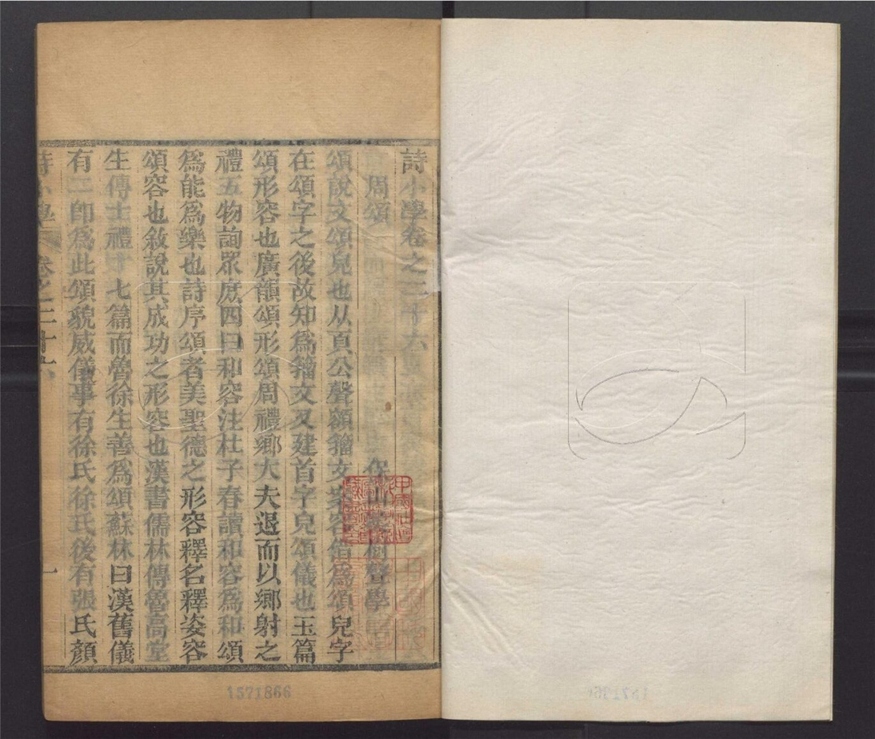 詩小學卷之二十六
周頌
保山吳樹聲學
頌說文頌皃也从頁公聲額籀文案容借爲頌皃字
在頌字之後故知爲籀文又建首字皃頌儀也玉篇
頌形容也廣韻頌形頌周禮鄉大夫退而以鄉射之
禮五物詢眾庶四曰和容注杜子春讀和容爲和頌
爲能爲樂也詩序頌者美聖德之形容釋名釋姿容
頌容也敘說其成功之形容也漢書儒林傳魯高堂
生傳士禮十七篇而魯徐生善爲頌蘇林曰漢舊儀
有二郎爲此頌貌威儀事有徐氏徐氏後有張氏顏
詩小學 卷之二十六 一
1571866